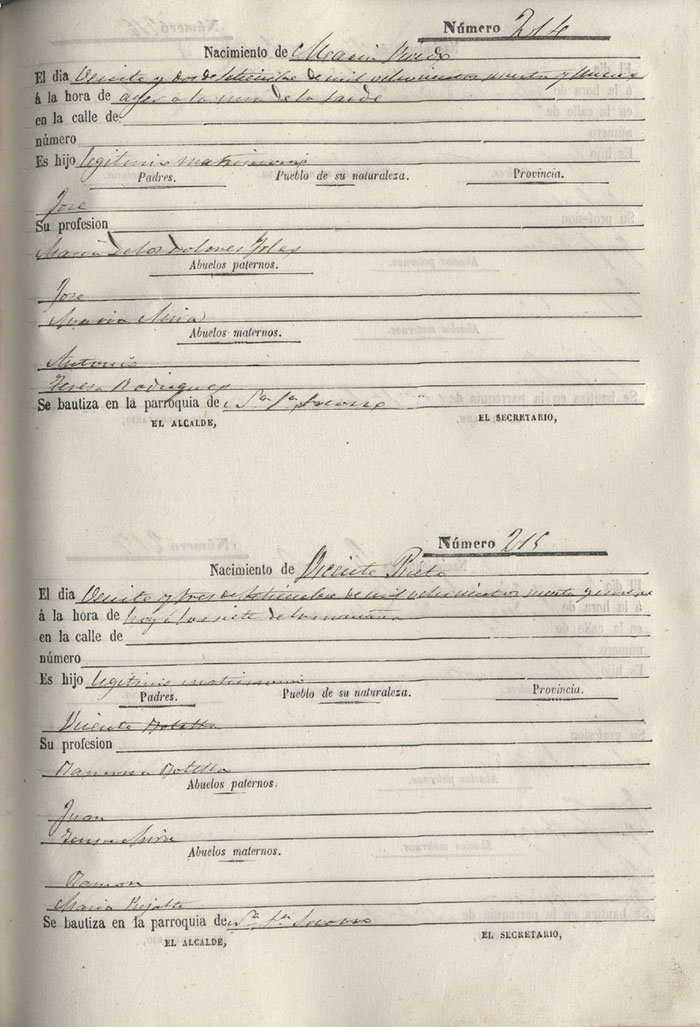 Número 214
Nacimiento de Maria
El dia Veinte y dos de Setiembre de mil ochocientos
á la hora de ayer a la una de la tarde
en la calle de
número
Es hijo legitimo matrimonio
Padres. Pueblo de su naturaleza. Provincia.
Jose
Su profesion
Maria de los Dolores
Abuelos paternos.
Jose
Maria Mira
Abuelos maternos.
Antonio
Teresa Rodriguez
Se bautiza en la parroquia de Socorro
EL ALCALDE, EL SECRETARIO,
Número 215
Nacimiento de Vicente
El dia Veinte y tres de Setiembre de mil ochocientos
á la hora de hoy a las siete de la mañana
en la calle de
número
Es hijo legitimo matrimonio
Padres. Pueblo de su naturaleza. Provincia.
Vicente Botella
Su profesion
Botella
Abuelos paternos.
Juan
Teresa Mira
Abuelos maternos.
Ramon
Maria
Se bautiza en la parroquia de Socorro
EL ALCALDE, EL SECRETARIO,